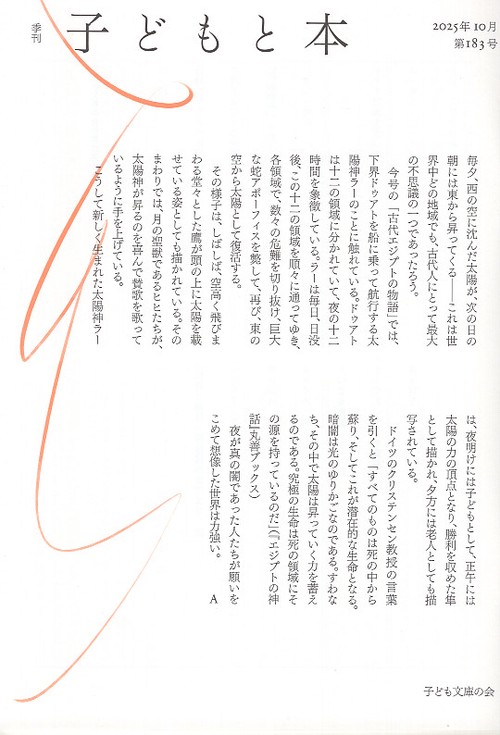 季刊
子どもと本
2025年10月
第183号
毎夕、西の空に沈んだ太陽が、次の日の
朝には東から昇ってくる――これは世
界中どの地域でも、古代人にとって最大
の不思議の一つであったろう。
今号の「古代エジプトの物語」では、
下界ドゥアトを船に乗って航行する太
陽神ラーのことに触れている。ドゥアト
は十二の領域に分かれていて、夜の十二
時間を象徴している。ラーは毎日、日没
後、この十二の領域を順々に通ってゆき、
各領域で、数々の危難を切り抜け、巨大
な蛇アポーフィスを斃して、再び、東の
空から太陽として復活する。
その様子は、しばしば、空高く飛びま
わる堂々とした鷹が頭の上に太陽を載
せている姿としても描かれている。その
まわりでは、月の聖獣であるヒヒたちが、
太陽神が昇るのを喜んで賛歌を歌って
いるように手を上げている。
こうして新しく生まれた太陽神ラー
は、夜明けには子どもとして、正午には
太陽の力の頂点となり、勝利を収めた隼
として描かれ、夕方には老人としても描
写されている。
ドイツのクリステンセン教授の言葉
を引くと「すべてのものは死の中から
蘇り、そしてこれが潜在的な生命となる。
暗闇は光のゆりかごなのである。すなわ
ち、その中で太陽は昇っていく力を蓄え
るのである。究極の生命は死の領域にそ
の源を持っているのだ」（『エジプトの神
話』丸善ブックス）
夜が真の闇であった人たちが願いを
こめて想像した世界は力強い。 A
子ども文庫の会